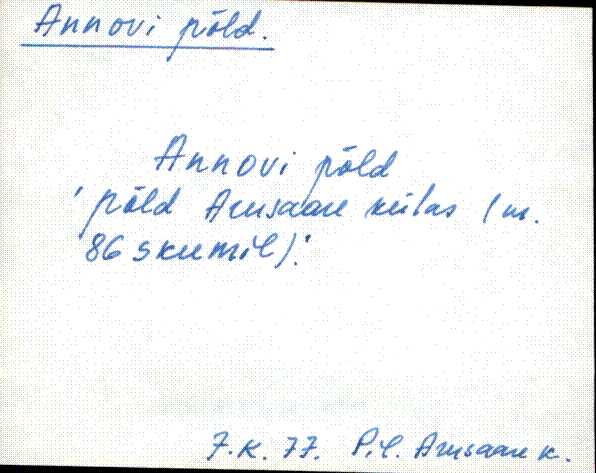 Annovi põld.
Annovi põld
'põld Arusaare külas (nr.
86 skeemil).'
J.K. 77. Pil. Arusaare k.